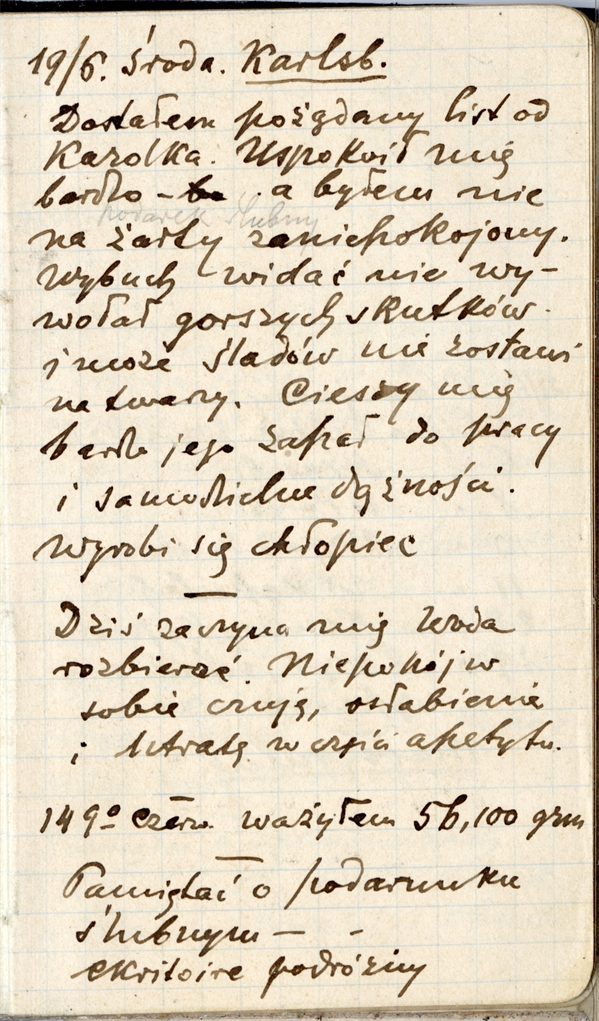 19/6. Środa. Karlsb.
Dostałem pożądany list od
Karolka. Uspokoił mię
bardzo – be a byłem nie
podarek ślubny
na żarty zaniepokojony.
Wybuch widać nie wy-
wołał gorszych skutków.
i może śladów nie zostawi
na twarzy. Cieszy mię
bardzo jego zapał do pracy
i samodzielne dążności.
Wyrobi się chłopiec
Dziś zaczyna mię woda
rozbierać. Niepokój w
sobie czuję, osłabienie
i utratę w części apetytu.
149º czerw. ważyłem 56,100 grm
Pamiętać o podarunku
ślubnym – -
ekritoire podróżny